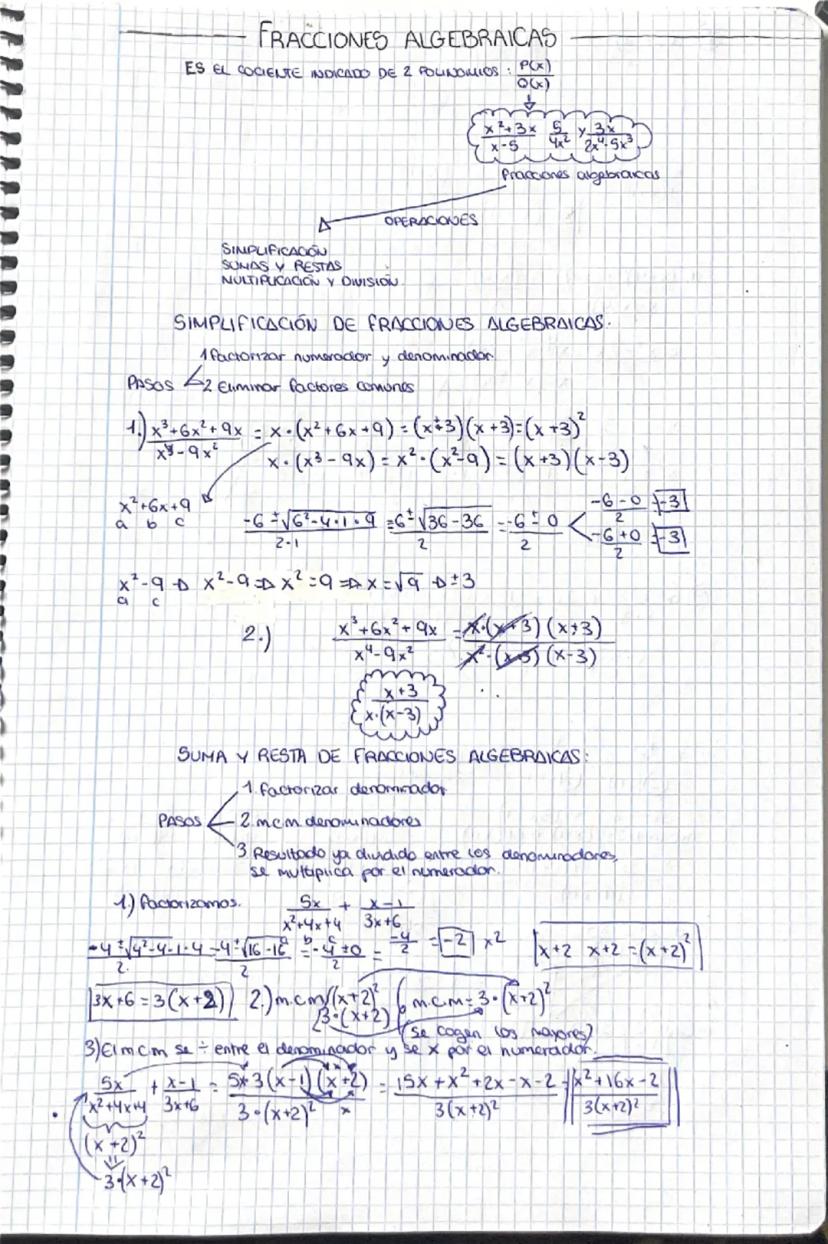 FRACCIONES ALGEBRAICAS
ES EL COCIENTE INDICADO DE 2 POLINOMIOS : P(x)/Q(x)
(x²+3x)/(x-5) 5/4x² y 3x/(2x⁴-5x³)
fracciones algebraicas
OPERACIONES
SIMPLIFICACIÓN
SUMAS Y RESTAS
MULTIPLICACIÓN Y DIVISIÓN
SIMPLIFICACIÓN DE FRACCIONES ALGEBRAICAS.
1 factorizar numerador y denominador.
PASOS
2 Eliminar factores comunes
1.) (x³+6x²+9x)/(x⁴-9x²) = x·(x²+6x+9) = (x+3)(x+3) = (x+3)²
x·(x³-9x) = x²·(x²-9) = (x+3)(x-3)
x²+6x+9
a b c
(-6±√(6²-4·1·9))/(2·1) = (-6±√(36-36))/2 = (-6±0)/2 < (-6-0)/2 = -3
(-6+0)/2 = -3
x²-9 ⇒ x²-9 ⇒ x²=9 ⇒ x=√9 ⇒ ±3
a c
2.) (x³+6x²+9x)/(x⁴-9x²) = (x·(x+3)(x+3))/(x²·(x+3)(x-3))
(x+3)/(x·(x-3))
SUMA Y RESTA DE FRACCIONES ALGEBRAICAS:
1. factorizar denominador
PASOS
2. mcm. denominadores
3 Resultado ya dividido entre los denominadores,
se multiplica por el numerador.
1.) factorizamos. 5x/(x²+4x+4) + (x-1)/(3x+6)
a b c
(-4±√(4²-4·1·4))/2 = (-4±√(16-16))/2 = (-4±0)/2 = -4/2 = -2 x2 x+2 x+2 = (x+2)²
3x+6 = 3(x+2) 2.) m.c.m (x+2)² 3·(x+2) mcm = 3·(x+2)²
(se cogen los mayores)
3) El mcm se ÷ entre el denominador y se x por el numerador.
5x/(x²+4x+4) + (x-1)/(3x+6) = (5x·3(x-1)(x+2))/(3·(x+2)²) = (15x+x²+2x-x-2)/(3(x+2)²) = (x²+16x-2)/(3(x+2)²)
(x+2)²
3·(x+2)²